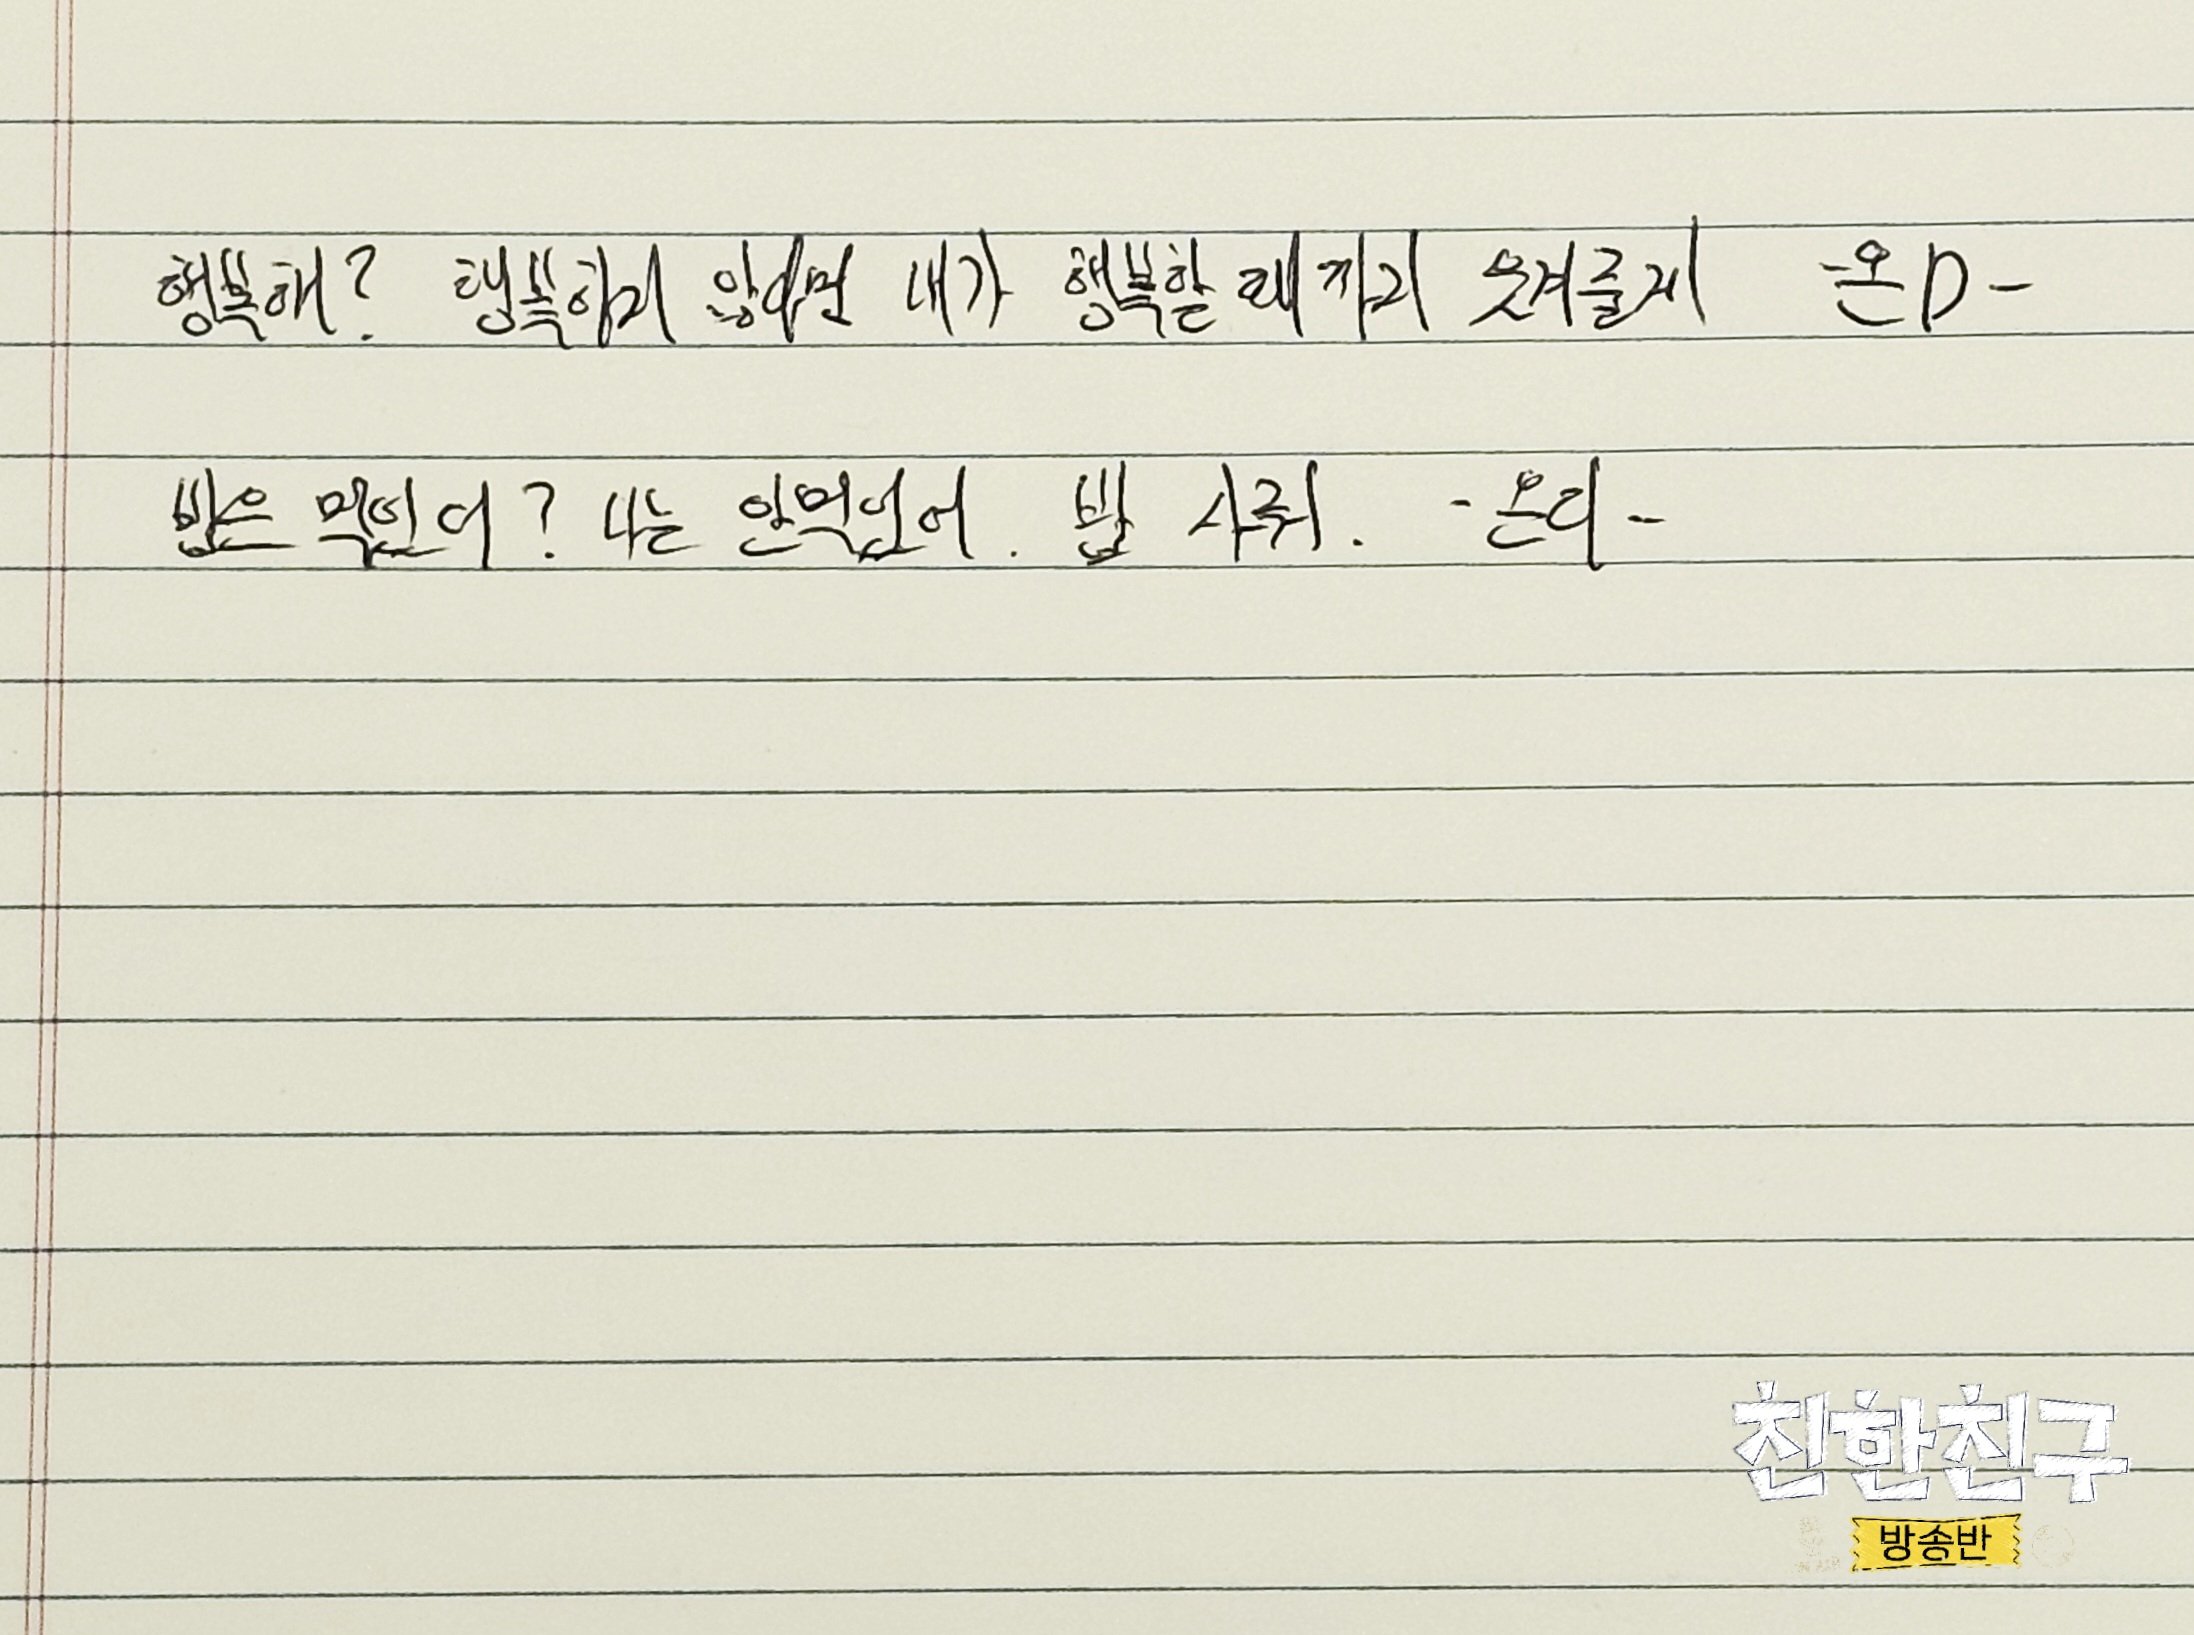 행복해? 행복하지 않으면 내가 행복할 때까지 웃겨줄게 -온D-
밥은 먹었어? 나는 안먹었어. 밥 사줘. -온디-
친한친구
방송반